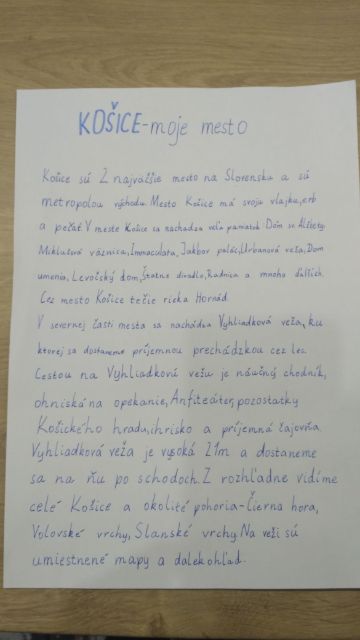 KOŠICE-moje mesto
Košice sú 2 najväčšie mesto na Slovensku a sú
metropolou východu. Mesto Košice má svoju vlajku, erb
a pečať. V meste Košice sa nachádza veľa pamiatok: Dom sv. Alžbety,
Miklušová väznica, Immaculata, Jakbov palác, Urbanová veža, Dom
umenia, Levočský dom, Štátne divadlo, Radnica a mnoho ďalších.
Cez mesto Košice tečie rieka Hornád.
V severnej časti mesta sa nachádza Vyhliadková veža, ku
ktorej sa dostaneme príjemnou prechádzkou cez les.
Cestou na Vyhliadkovú vežu je náučný chodník,
ohniská na opekanie, Anfiteáter, pozostatky
Košického hradu, ihrisko a príjemná čajovňa.
Vyhliadková veža je vysoká 21m a dostaneme
sa na ňu po schodoch. Z rozhľadne vidíme
celé Košice a okolité pohoria-Čierna hora,
Volovské vrchy, Slanské vrchy. Na veži sú
umiestnené mapy a ďalekohľad.